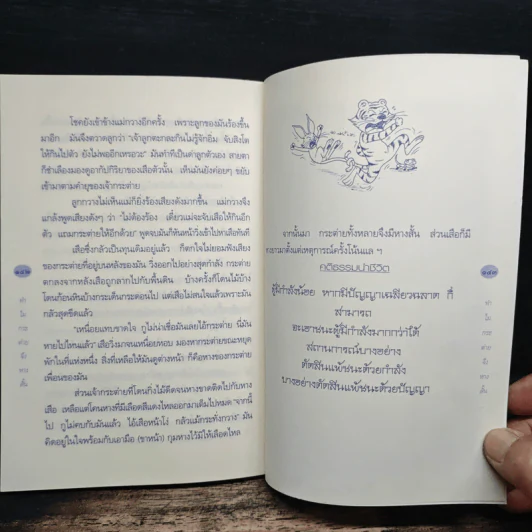 โชคยังเข้าข้างแม่กวางอีกครั้ง เพราะลูกของมันร้องขึ้น
มาอีก มันจึงตวาดลูกว่า "เจ้าลูกตะกละกินไม่รู้จักอิ่ม จับสิงโต
ให้กินไปตัว ยังไม่พออีกเหรอวะ" มันทำทีเป็นด่าลูกตัวเอง สายตา
ก็ชำเลืองมองดูอากัปกิริยาของเสือตัวนั้น เห็นมันยังค่อยๆ ขยับ
เข้ามาตามคำยุของเจ้ากระต่าย
ลูกกวางไม่เห็นแม่ก็ยิ่งร้องเสียงดังมากขึ้น แม่กวางจึง
แกล้งพูดเสียงดังๆ ว่า "ไม่ต้องร้อง เดี๋ยวแม่จะจับเสือให้กินอีก
ตัว แถมกระต่ายให้อีกด้วย" พูดจบมันก็หันหน้าวิ่งเข้าไปหาเสือทันที
เสือซึ่งกลัวเป็นทุนเดิมอยู่แล้ว ก็ตกใจไม่ยอมฟังเสียง
ของกระต่ายที่อยู่บนหลังของมัน วิ่งออกไปอย่างสุดกำลัง กระต่าย
ตกลงจากหลังเสือถูกลากไปกับพื้นดิน บ้างครั้งก็โดนไม้บ้าง
โดนก้อนหินบ้างกระเด็นกระดอนไป แต่เสือไม่สนใจแล้วเพราะมัน
กลัวสุดขีดแล้ว
"เหนื่อยแทบขาดใจ กูไม่น่าเชื่อมันเลยไอ้กระต่าย นี่มัน
หายไปไหนแล้ว" เสือวิ่งมาจนเหนื่อยหอบ มองหากระต่ายขณะหยุด
พักในที่แห่งหนึ่ง สิ่งที่เหลือให้มันดูต่างหน้า ก็คือหางของกระต่าย
เพื่อนของมัน
ส่วนเจ้ากระต่ายที่โดนกิ่งไม้ดีดจนหางขาดติดไปกับหาง
เสือ เหลือแต่โคนหางที่มีเลือดสีแดงไหลออกมาเต็มไปหมด "จากนี้
ไป กูไม่คบกับมันแล้ว ไอ้เสือหน้าโง่ กลัวแม้กระทั่งกวาง" มัน
คิดอยู่ในใจพร้อมกับเอามือ (ขาหน้า) กุมหางไว้มิให้เลือดไหล
จากนั้นมา กระต่ายทั้งหลายจึงมีหางสั้น ส่วนเสือก็มี
ตั้งแต่เหตุการณ์ครั้งโน้นแล ฯ
คติธรรมนำชีวิต
ผู้มีกำลังน้อย หากมีปัญญาเฉลียวฉลาด ก็
สามารถ
จะเอาชนะผู้มีกำลังมากกว่าได้
สถานการณ์บางอย่าง
ตัดสินแพ้ชนะด้วยกำลัง
บางอย่างตัดสินแพ้ชนะด้วยปัญญา